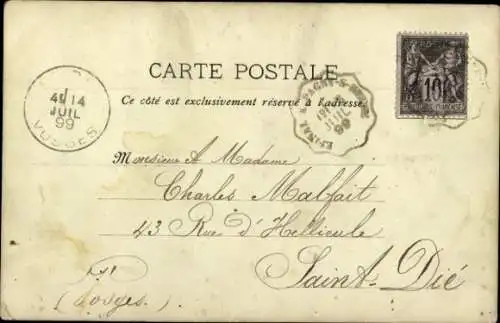 CARTE POSTALE
Ce côté est exclusivement réservé à l'adresse
14
JUIL
99
VOSGES
ÉPINAL
JUIL
99
10
Monsieur & Madame
Charles Malfait
43 Rue d'Hellieule
Saint-Dié
(Vosges.)